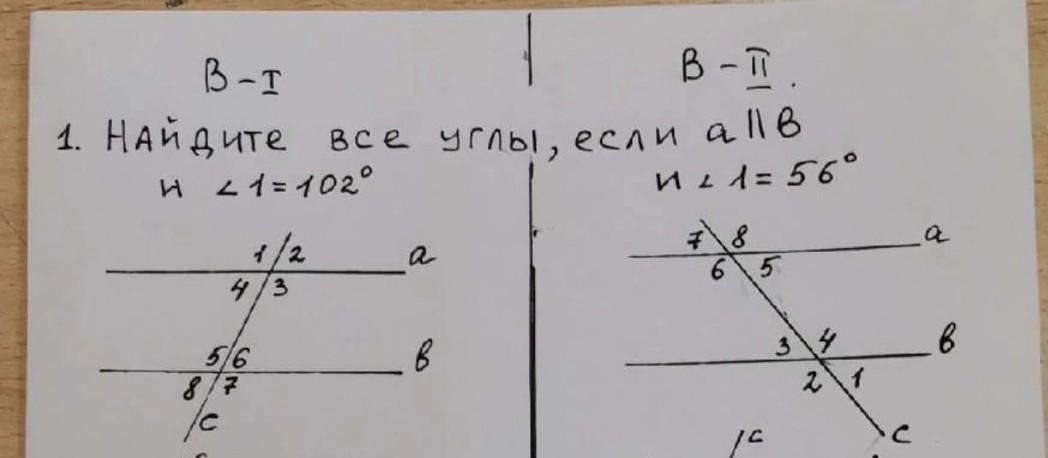 В-I
В-II.
1. Найдите все углы, если a||в
и ∠1=102°
и ∠1=56°
1 2 a
4 3
5 6 в
8 7
c
7 8 a
6 5
3 4 в
2 1
c
c